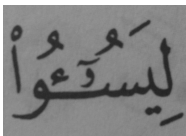 لِيَسُـࣳـُٔوا۟